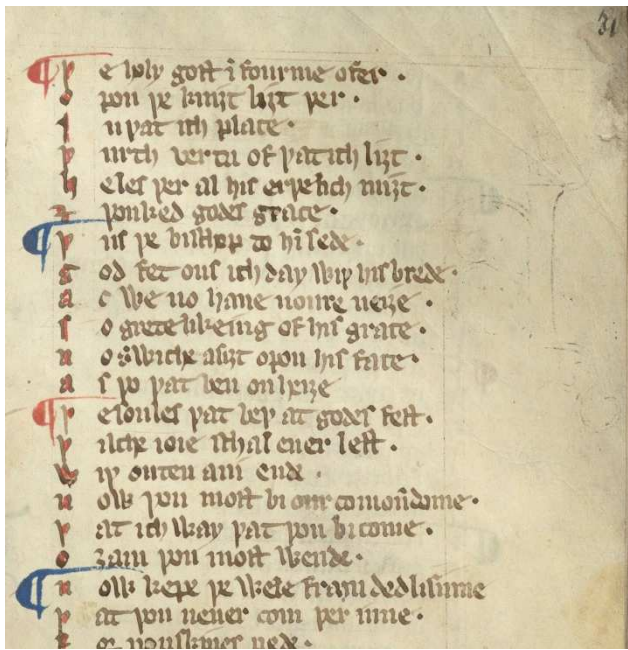 31
¶ Þ e holy gost ī fourme of er .
O pon þe kniȝt liȝt þer .
I n þat ich place .
Þ urth vertu of þat ich liȝt .
H e les þer al his erþelich miȝt .
⁊ þonked godes grace .
¶ Þ us þe bischop to hī sede .
G od fet ous ich day wiþ his brede .
A c we no haue noure neiȝe .
S o grete likeing of his grace .
N o swiche a siȝt opon his face .
A s þo þat ben on heiȝe
¶ Þ e soules þat beþ at godes fest .
Þ ilche ioie schal euer lest .
W iþ outen ani ende .
N ow þou most bi our comoūdome .
Þ at ich way þat þou bicome .
O ȝain þou most wende .
¶ N ow kepe þe wele fram dedli sinne
Þ at þou neuer com þer inne .
F or nonskines nede .